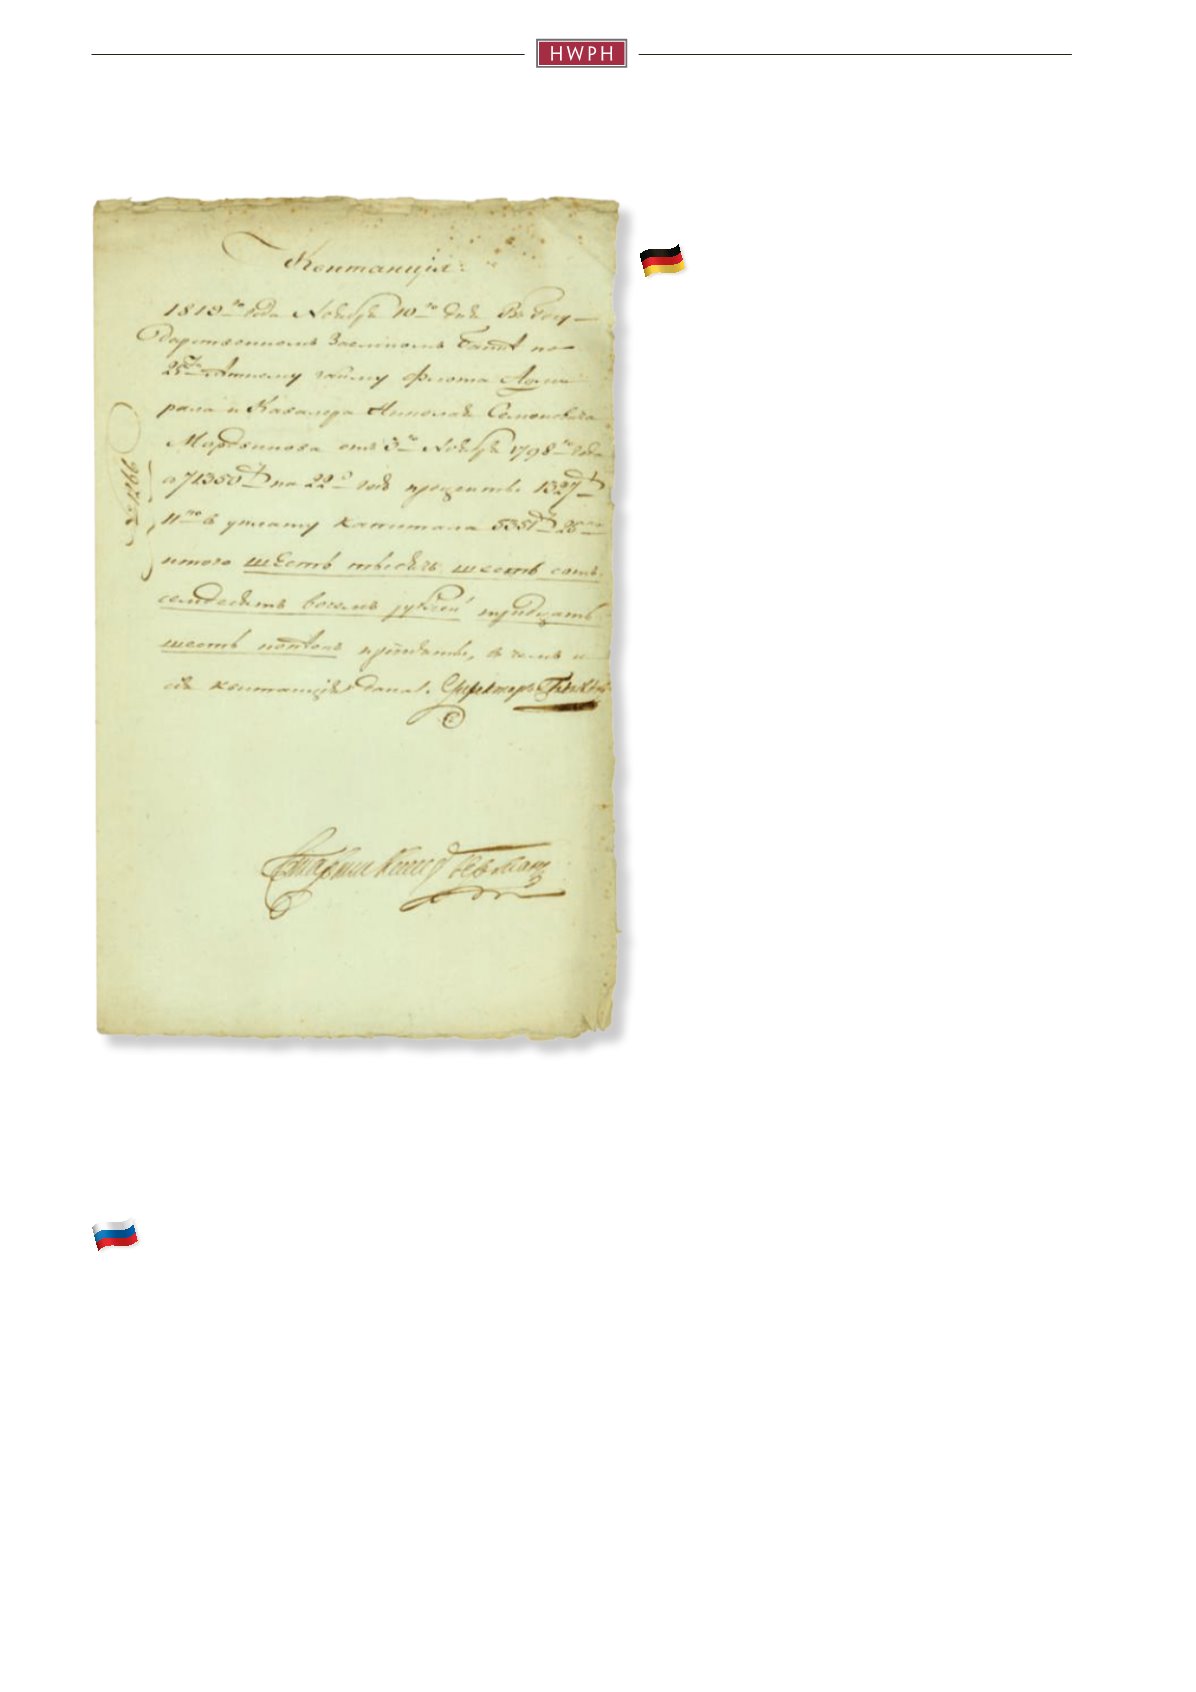 HWPH
Квитанція.
1819го года Ноября 10го дня Въ Госу-
дарственномъ Заемномъ Банкѣ по
25ти лѣтнему займу Флота Адми
рала и Кавалера Николая Семеновича
Мордвинова отъ 3го Ноября 1798го года
71350 на 22й годъ процентовъ 1327
11 въ уплату капитала 5351 25
итого шесть тысячь шесть сотъ
семдесятъ восемь рублей тридцать
шесть копѣекъ приняты, въ чемъ и
сія квитанція дана. Директоръ